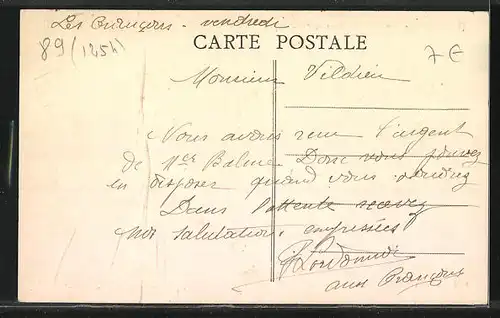 Les Briançons - vendredi
89 (125h)
CARTE POSTALE
7 €
Monsieur Vildieu
Nous avons reçu l'argent
de Mce Balme Donc vous pouvez
en disposer quand vous voudrez
Dans l'attente recevez
nos salutations empressées
aux Briançons